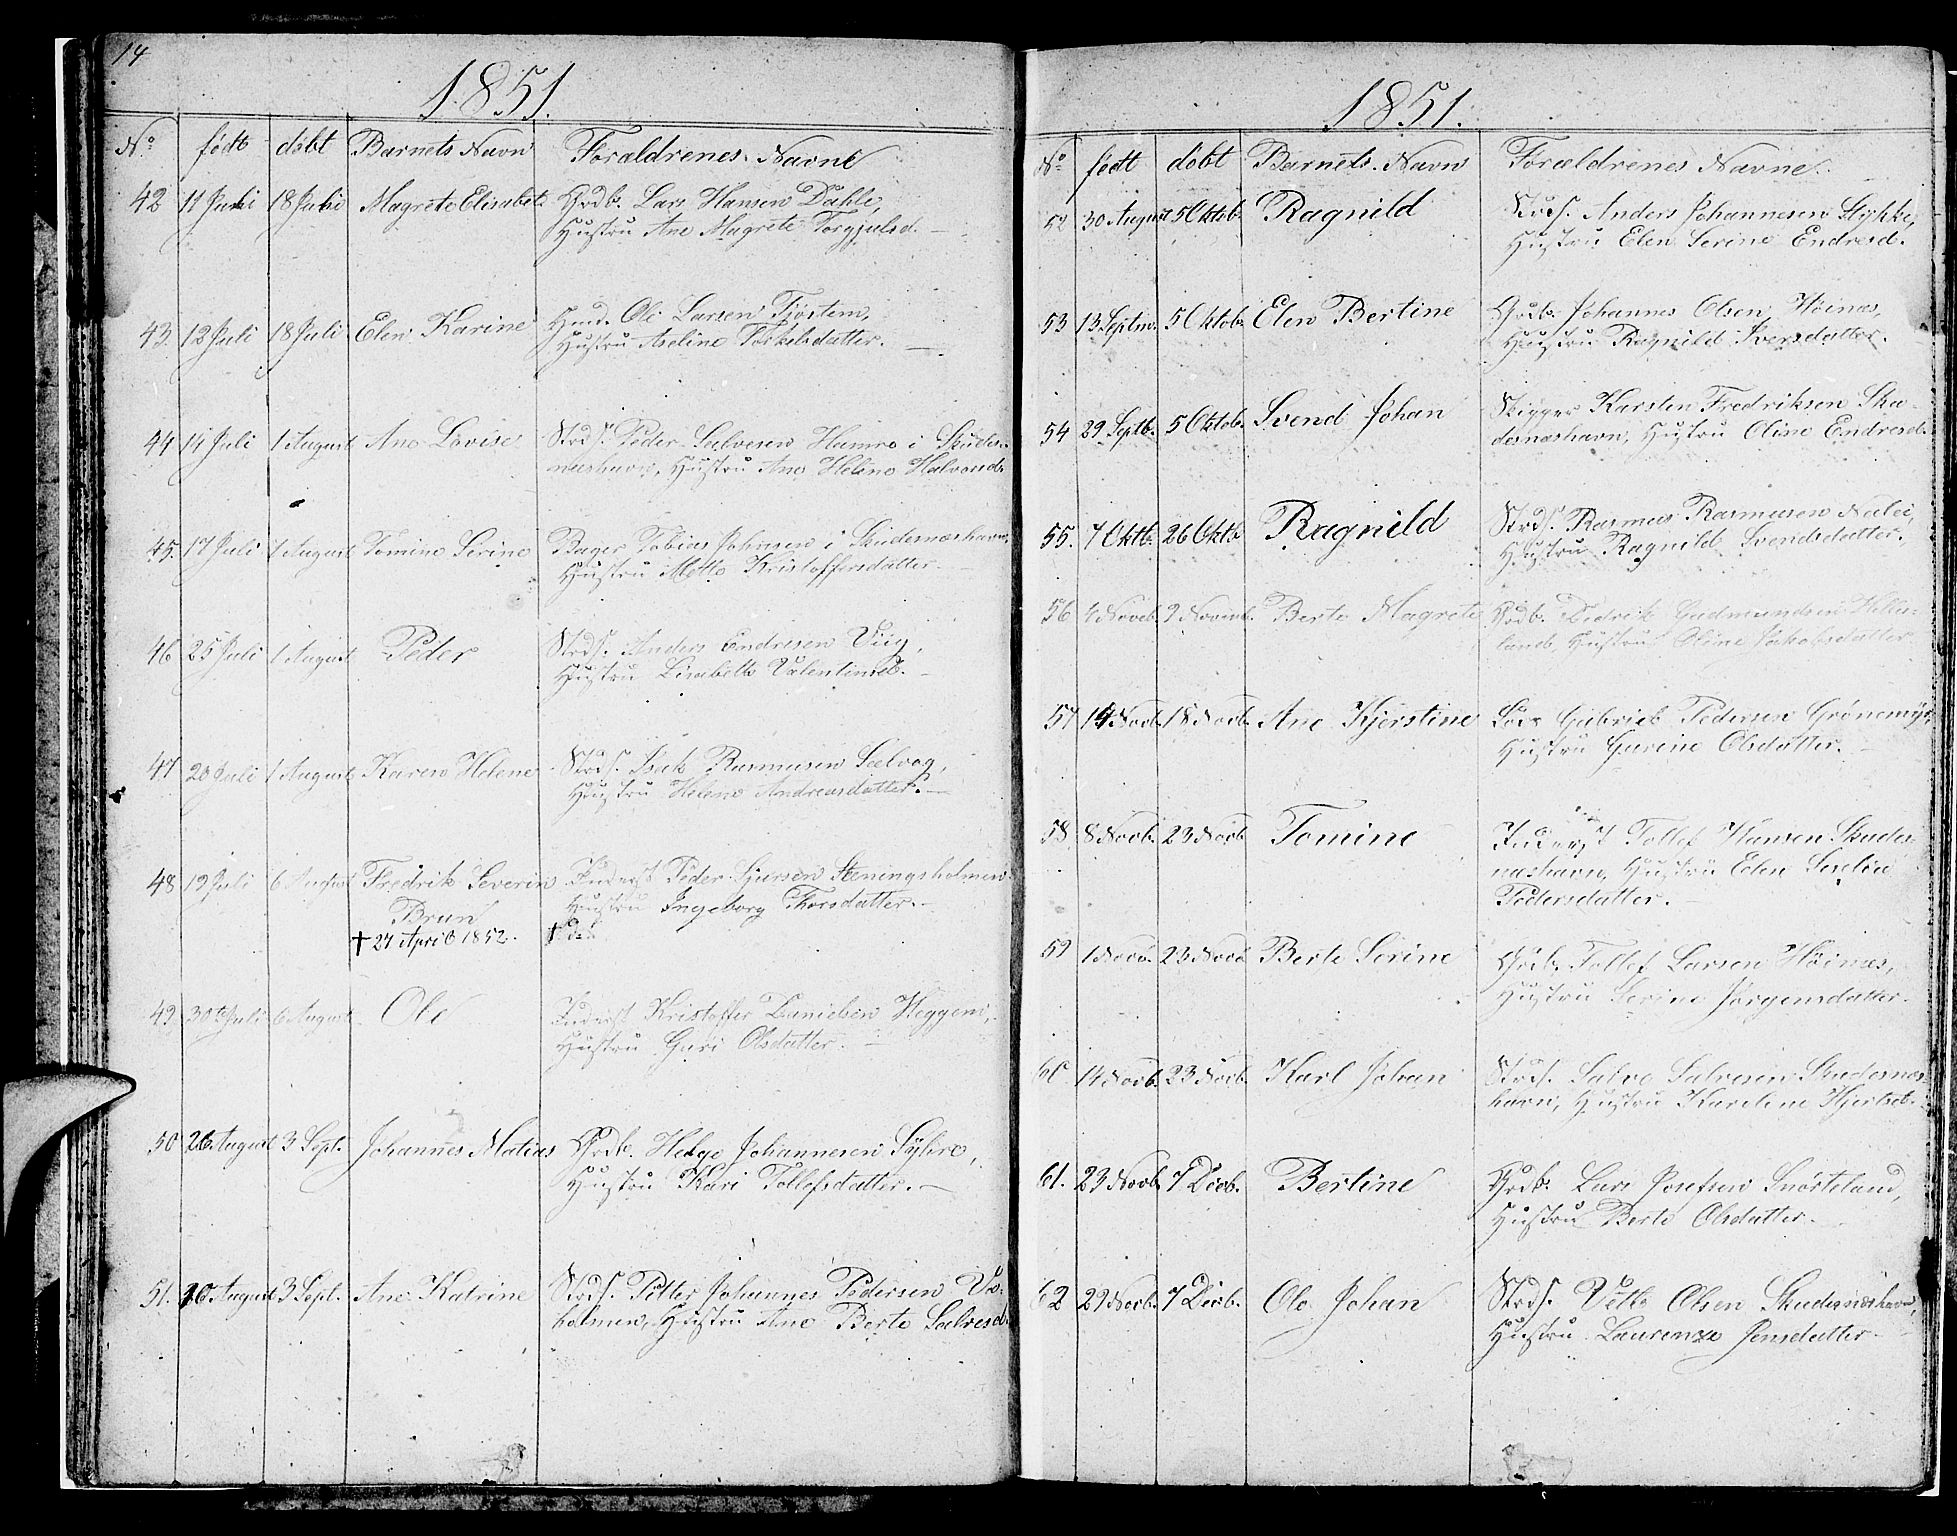 14
1851.
No. født døbt Barnets Navn Forældrenes Navne
42 11 Juli 18 Juli Magrete Elisabet Grdb. Lars Hansen Dahle,
Hustru Ane Magrete Torgjulsd. —
43. 12 Juli 18 Juli Elen Karine Hmd. Ole Larsen Fjørtem,
Hustru Aseline Torkelsdatter. —
44 14 Juli 1 August Ane Lovise Strds. Peder Salvesen Hamre i Skudes-
næshavn, Hustru Ane Heline Halvorsd.
45. 17 Juli 1 August Tomine Serine Bager Tobias Johnsen i Skudesnæshavn,
Hustru Mette Kristoffersdatter. —
46 25 Juli 1 August Peder Strds. Anders Endresen Viig,
Hustru Lisabeth Valentinsd. —
47 20 Juli 1 August Karen Helene Strds. Isak Rasmusen Sælvog,
Hustru Helene Andreasdatter. —
48 19 Juli 6 August Fredrik Severin Inderst Peder Sjursen Steningsholmen
Brun Hustru Ingeborg Thorsdatter. —
† 27 April 1852. †
49. 30te Juli 6 August Ole Inderst Kristoffer Danielsen Heggem,
Hustru Guri Olsdatter. —
50 26 August 3 Sept. Johannes Matias Grdb. Helge Johannesen Syhre,
Hustru Kari Tollefsdatter. —
51. 20 August 3 Sept. Ane Katrine Strds. Potter Johannes Pedersen Vo-
holmen, Hustru Ane Berte Salvesd.
1851.
No. født døbt Barnets Navn Forældrenes Navne.
52 30 August 5 Oktob. Ragnild Strds. Anders Johannesen Stykke,
Hustru Elen Serine Endresd.
53 13 Septm. 5 Oktob. Elen Bertine Grdb. Johannes Olsen Høines,
Hustru Ragnild Iversdatter.
54 29 Septb. 5 Oktob. Svend Johan Skipper Karsten Fredriksen Sku-
desnæshavn, Hustru Oline Endresd.
55. 7 Oktb. 26 Oktb. Ragnild Strds. Rasmus Rasmusen Nalei,
Hustru Ragnild Svendsdatter.
56 4 Novb. 9 Novemb. Berte Magrete Grdb. Didrik Gudmundsen Helle-
land, Hustru Oline Jakobsdatter
57 14 Novb. 18 Novb. Ane Kjerstine Gabriel Pedersen Grønemyr,
Hustru Gurine Olsdatter. —
58 8 Novb. 23 Novb. Tomine Inderst Tollef Hansen Skudes-
næshavn, Hustru Elen Serelia
Pedersdatter. —
59 1 Novb. 23 Novb. Berte Serine Grdb. Tollef Larsen Høines,
Hustru Serine Jørgensdatter.
60 14 Novb. 23 Novb. Karl Johan Strds. Salve Salvesen Skudesnæs-
havn, Hustru Kareline Hjertsd.
61. 23 Novb. 7 Decb. Bertine Grdb. Lars Josefsen Snørteland,
Hustru Berte Olsdatter. —
62 29 Novb. 7 Decb. Ole Johan Strds. Vette Olsen Skudesnæshavn,
Hustru Laurenze Jensdatter —